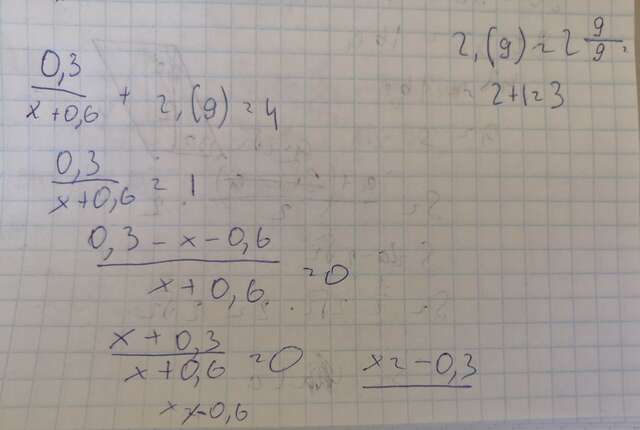 2,(9) = 2 9/9 =
2+1=3
0,3/(x+0,6) + 2,(9) = 4
0,3/(x+0,6) = 1
(0,3-x-0,6)/(x+0,6) = 0
(x+0,3)/(x+0,6) = 0 x=-0,3
x≠-0,6